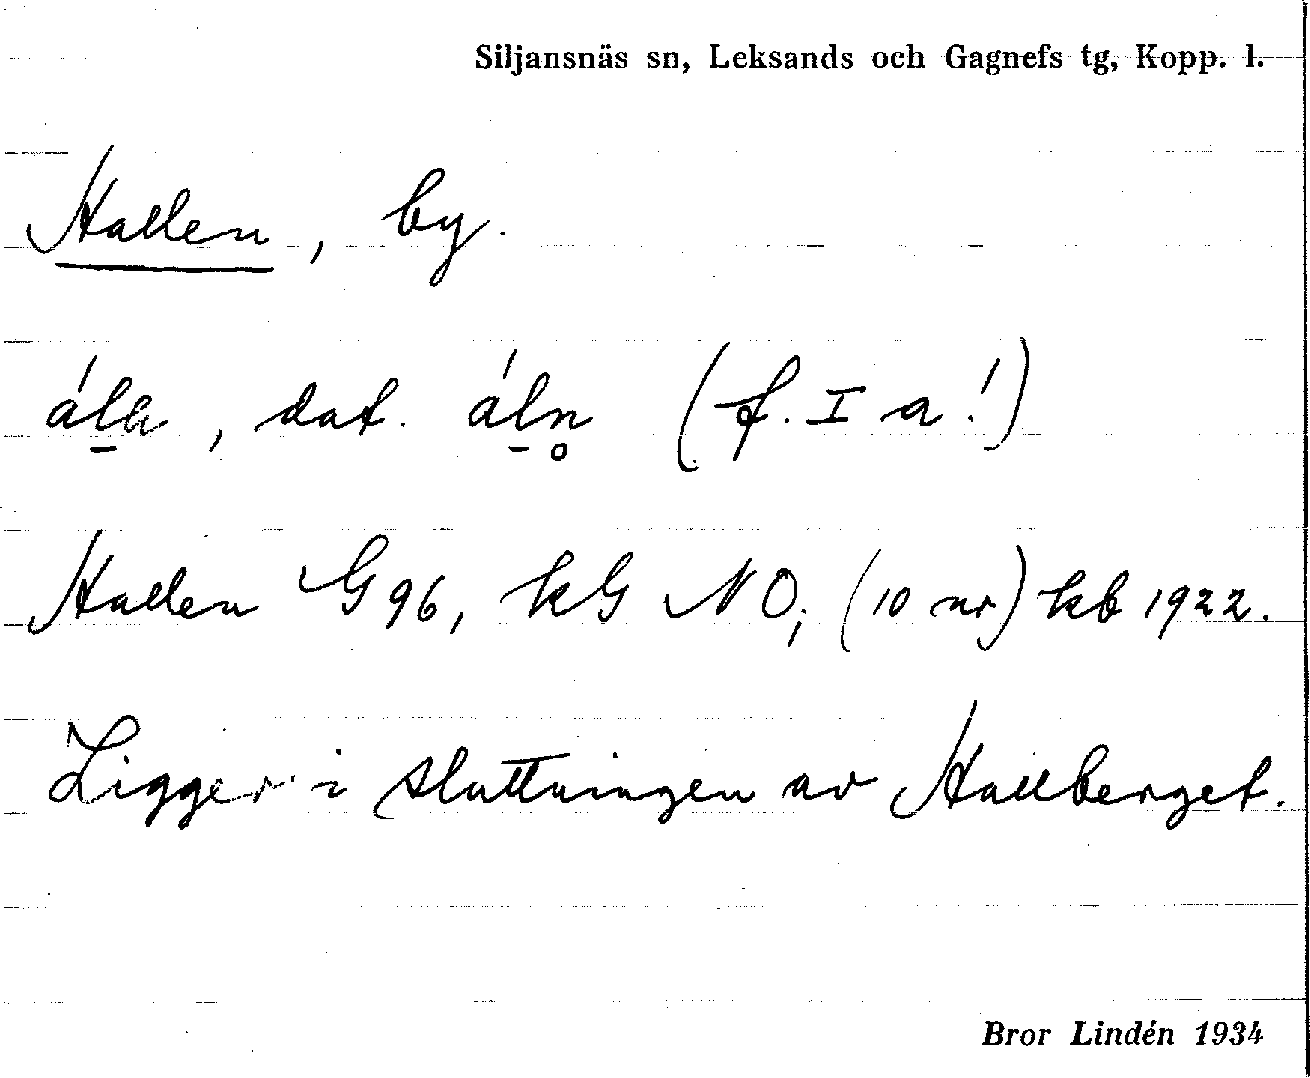 Siljansnäs sn, Leksands och Gagnefs tg, Kopp. l.
Hallen, by.
ála, dat. áln̥ (f. I a!)
Hallen G96, kG NO, (10 nr) kb 1922.
Ligger i sluttningen av Hallberget.
Bror Lindén 1934